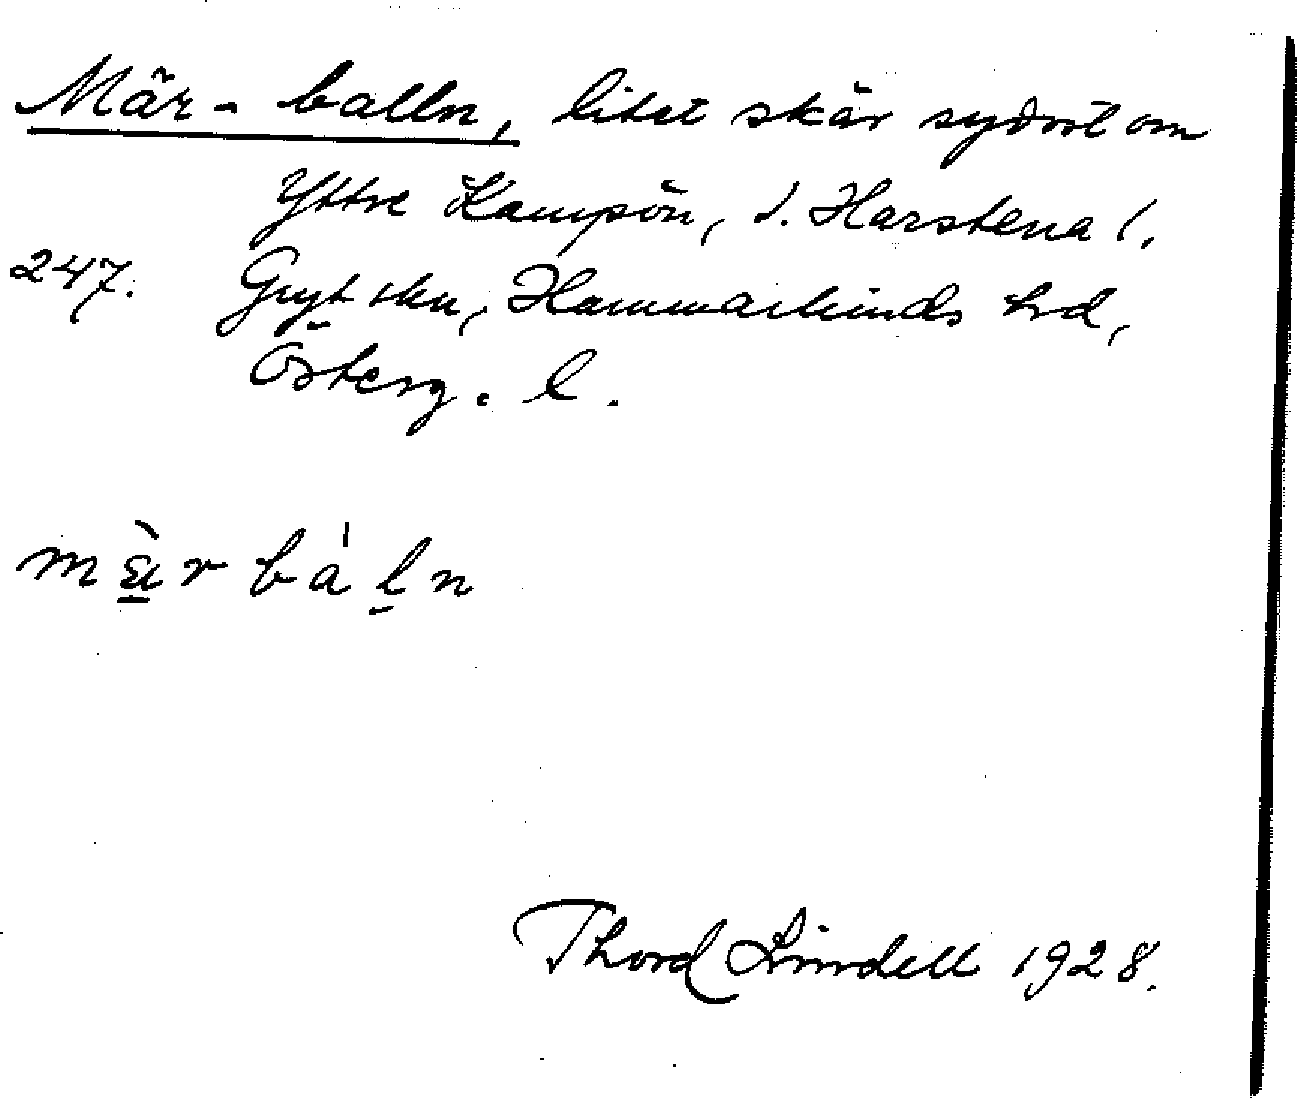 Mär-balln, litet skär sydost om
Yttre Kampön, S. Harstena l.
247. Gryt skn, Hammarkinds hd,
Österg. l.
märbaln
Thord Lindell 1928.